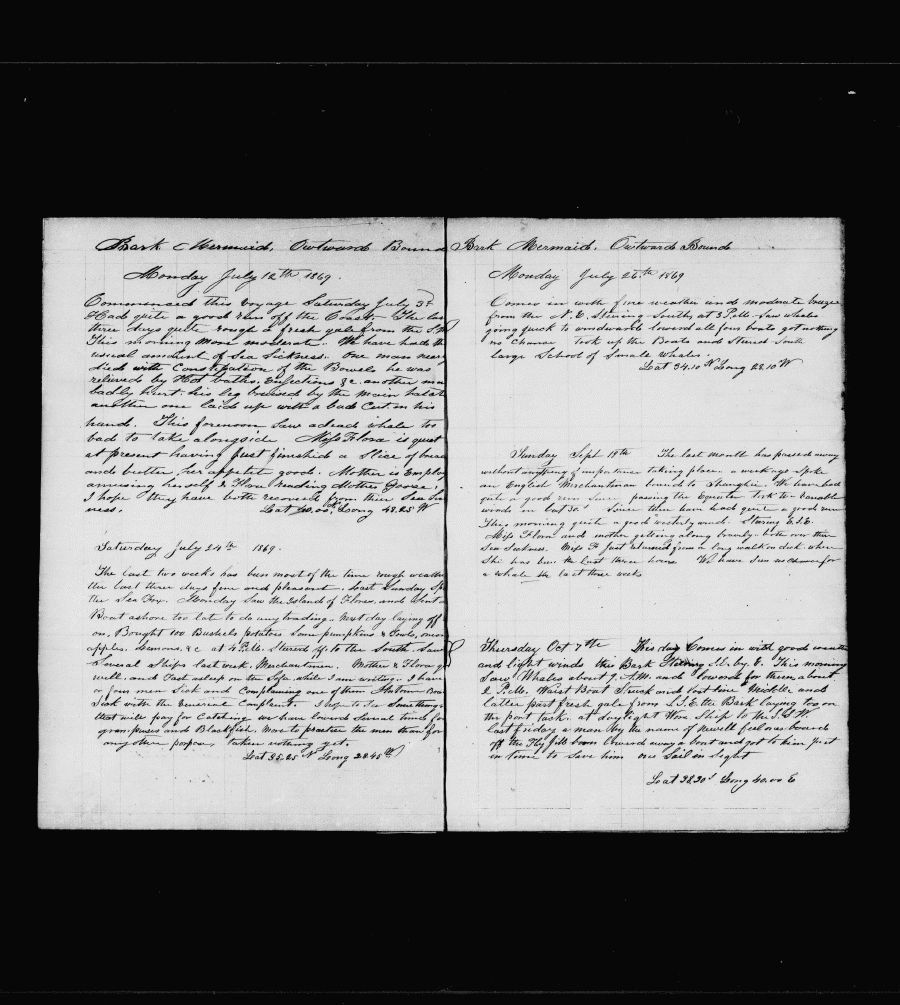 Bark Mermaid, Outward Bound
Monday July 12th 1869.
Commenced this voyage Saturday July 3d
Had quite a good run off the Coast. The las
three days quite rough a fresh gale from the S.W
This morning more moderate. We have had th
usual amount of Sea Sickness. One man near
died with Constipation of the Bowels he was
relieved by Hot baths, Injections &c. another man
badly hurt. his leg bruised by the main
another one laid up with a bad Cut in his
hand. This forenoon Saw a dead whale too
bad to take alongside Miss Flora is quiet
at present having just finished a Slice of bread
and butter, her appetet good. Mother is Employ
amusing herself & Flora reading Mother Goose.
I hope they have both recovered from their Sea Sic
ness. Lat 40.00 Long 48.25 W
Saturday July 24th 1869.
The last two weeks has been most of the time rough weather
the last three days fine and pleasant. Last Sunday Sp
the Sea Fox. Monday Saw the Island of Flores, and Sent a
Boat ashore too late to do any trading. Next day laying off
on, Bought 100 Bushels potatoes Some pumpkins & Fowls, onions
apples. Lemons. &c at 4 P.M. Steered off to the South. Saw
Several Ships last week. Merchantmen. Mother & Flora
well. and Fast asleep on the Sofa while I am writing. I have
or four men Sick and Complaining one of them
Sick with the Venerial Complaint. I hope to See Something
that will pay for Catching we have lowerd Several times for
grampuses and Blackfish. More to practice the men than for
any other purpose. taken nothing yet.
Lat 35.25 N Long 28.45 W
Bark Mermaid. Outward Bound
Monday July 26th 1869
Comes in with fine weather and moderate breezes
from the N.E. Stearing South, at 3 P.M. Saw whales
going quick to windward lowerd all four boats got nothing
no chance Took up the Boats and Steerd South
large School of Smale whales.
Lat 34.10 N Long 28.10 W
Sunday Sept 19th The last month has passed away
without anything of importance taking place. a week ago Spoke
an English Merchantman bound to Shanghie. We have had
quite a good run Since passing the Equator
winds in Lat 30° Since then have had quite a good run
This morning quite a good westerly wind. Staring E.S.E.
Miss Flora and mother getting along bravely. both over their
Sea Sickness. Miss F Just returned from a long walk on deck where
She has been the last three hours We have Seen no chance for
a whale the last three weeks
Thursday Oct 7th This day Comes in with good weather
and light winds the Bark Stearing by E. This morning
Saw Whales about 9 A.M. and lowerd for them about
2 P.M. Waist Boat Struck and lost line Middle and
latter part fresh gale from S.S.E. the Bark laying too on
the port tack. at daylight Wore Ship to the S.S.W.
last friday a man by the name of Newell fell over board
off the Fly jibb boom lowerd away a boat and got to him just
in time to Save him one Sail in Sight
Lat 32.30 S Long 40.00 E